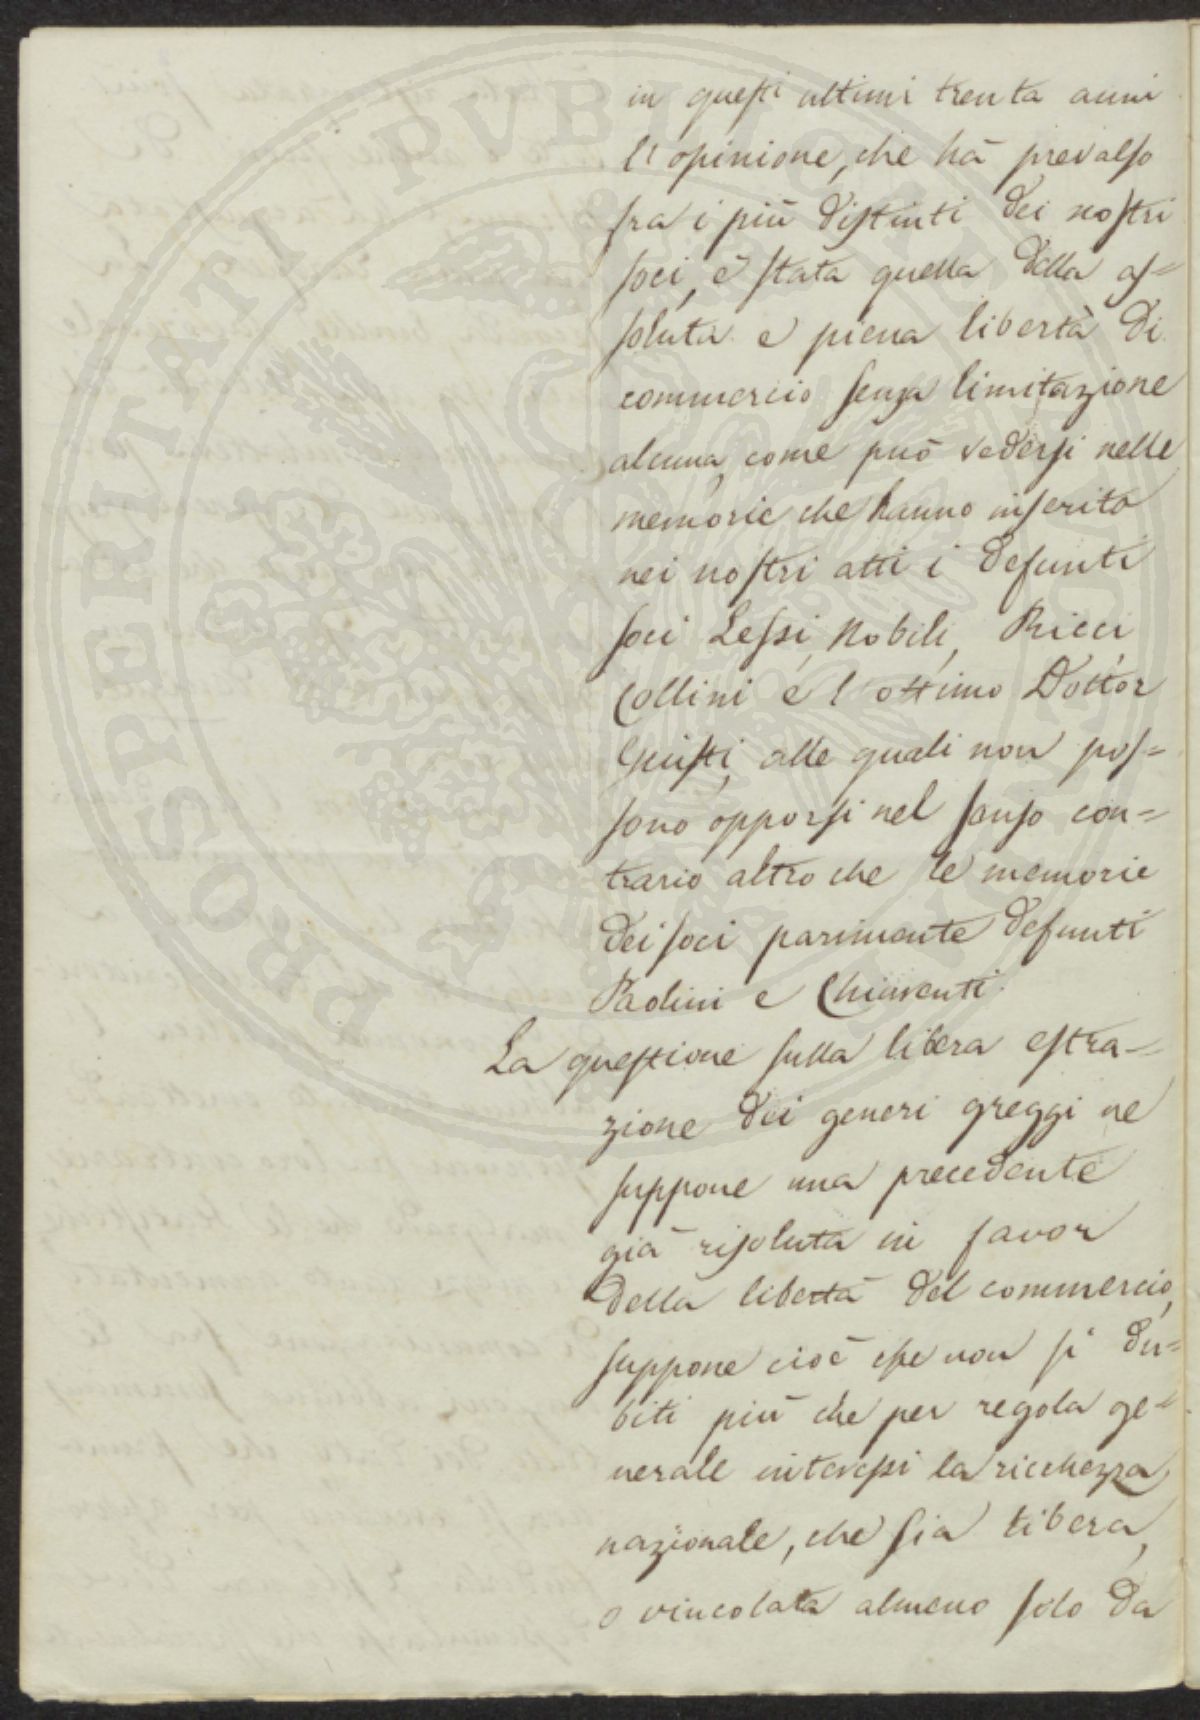 in questi ultimi trenta anni
l'opinione, che hà prevalso
fra i più distinti dei nostri
soci, è stata quella della as=
soluta e piena libertà di
commercio senza limitazione
alcuna, come può vedersi nelle
memorie che hanno inserito
nei nostri atti i defunti
soci Lessi, Nobili, Ricci,
Collini e l'ottimo Dottor
Giusti, alle quali non pos=
sono opporsi nel senso con=
trario altro che le memorie
dei soci parimente defunti
Paolini e Chiarenti.
La questione sulla libera estra=
zione dei generi greggi ne
suppone una precedente
già risoluta in favor
della libertà del commercio,
suppone cioè che non si du=
biti più che per regola ge=
nerale interessi la ricchezza
nazionale, che sia libera,
o vincolata almeno solo da
PROSPERITATI PVBLICAE